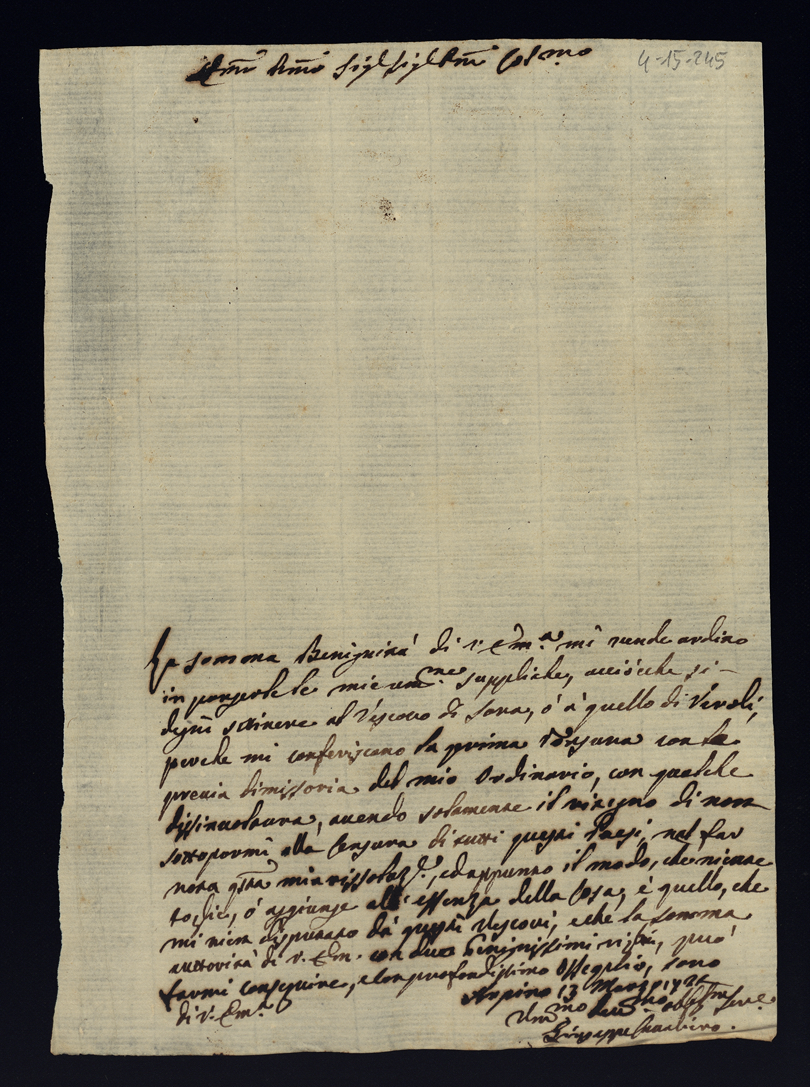 Em.o 4-15-245
La somma Benignità di V. Em.a mi rende ardino
in porgerle le mie um.me suppliche, acciòcche si-
degni scrivere al Vescovo di Sora, ó á quello di Veroli,
perche mi conferiscano la prima Tonsura con la
previa dimissoria del mio Ordinario, con qualche
disinvoltura, avendo solamente il ritegno di non
sottopormi alla Censura di tutti questi Paesi, nel far
nota q.sta mia, ed appunto il modo, che niente
toglie, ó aggiunge all'essenza della Cosa, é quello, che
mi vien disputato dà questi Vescovi, e che la somma
auttorità di V. Em. con due benignissimi, può
farmi conseguire, e con profondissimo Ossequio, sono
di V. Em.a Arpino 13 Marzo
Um.mo Dev.mo
Giuseppe